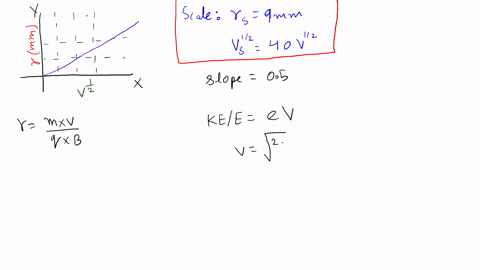 Y
r (mm)
X
V^1/2
Scale: r_s = 9 mm
V_s^1/2 = 40 V^1/2
slope = 0.5
r = m×v / q×B
KE/E = eV
v = √2.